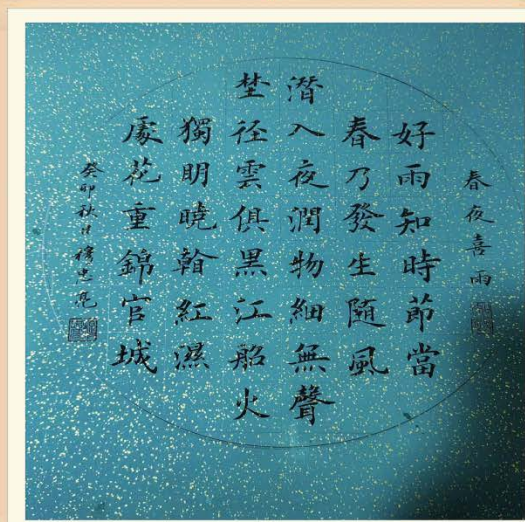 春夜喜雨
好雨知時節當
春乃發生隨風
潛入夜潤物細無聲
埜径雲俱黑江船火
獨明曉看紅濕
處花重錦官城
癸卯秋穆忠亮